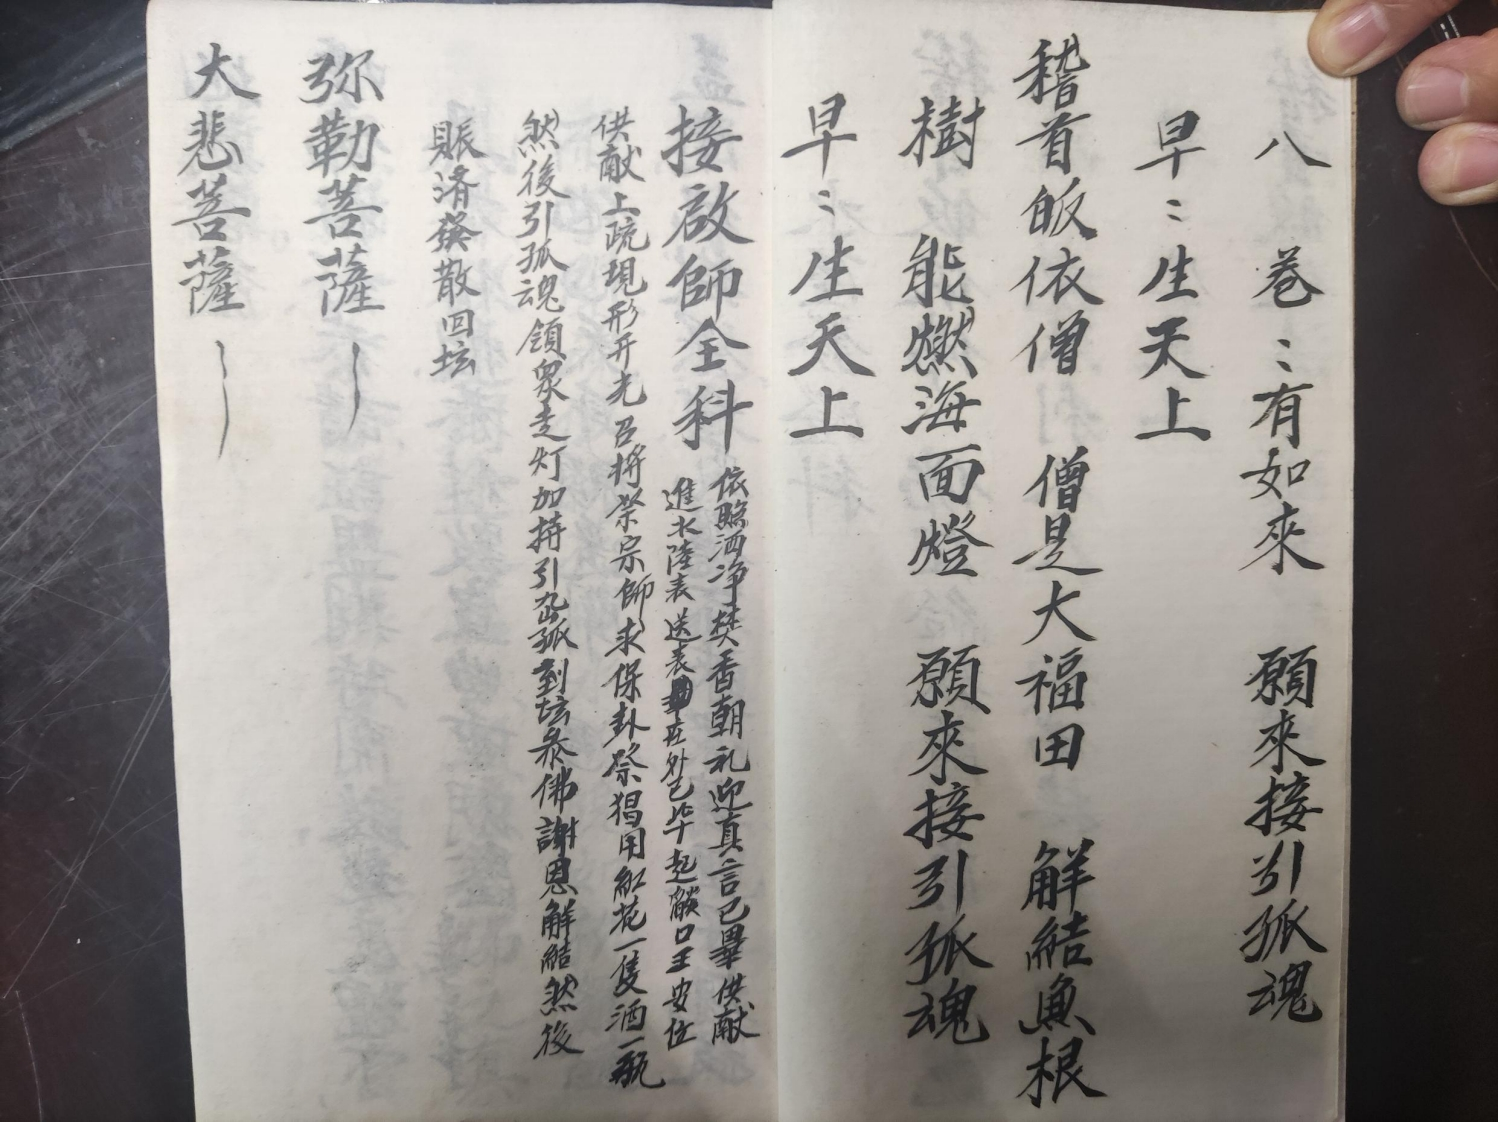 八　巻〻有如來　願來接引孤魂
早〻生天上
稽首皈依僧　僧是大福田　解結魚根
樹　能燃海面燈　願來接引孤魂
早〻生天上
接啟師全科
依照洒净焚香朝礼迎真言已畢供献
進水陸表送表在外已毕起 口王安位
供献上疏現形开光召将祭宗師求保卦祭猖用紅花一隻酒一瓶
然後引孤魂領衆走灯加持引 孤到坛参佛謝恩解結然後
賑济發散回坛
弥勒菩薩
大悲菩薩